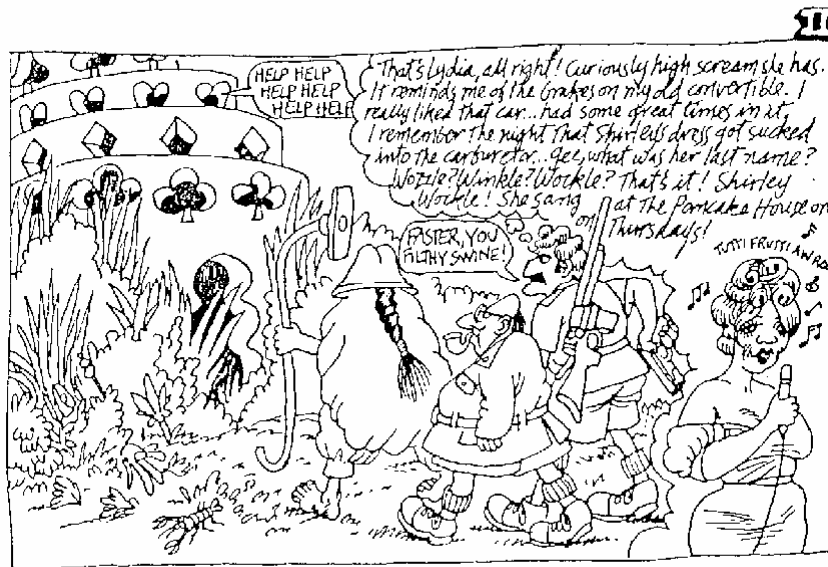 HELP HELP
HELP HELP
HELP HELP
That's Lydia, all right! Curiously high scream she has.
It reminds me of the brakes on my old convertible. I
really liked that car...had some great times in it.
I remember the night that Shirley's dress got sucked
into the carburetor...gee, what was her last name?
Wozzle? Winkle? Wockle? That's it! Shirley
Wockle! She sang at the Pancake House on
on Thursdays!
FASTER, YOU
FILTHY SWINE!
TUTTI FRUTTI AW